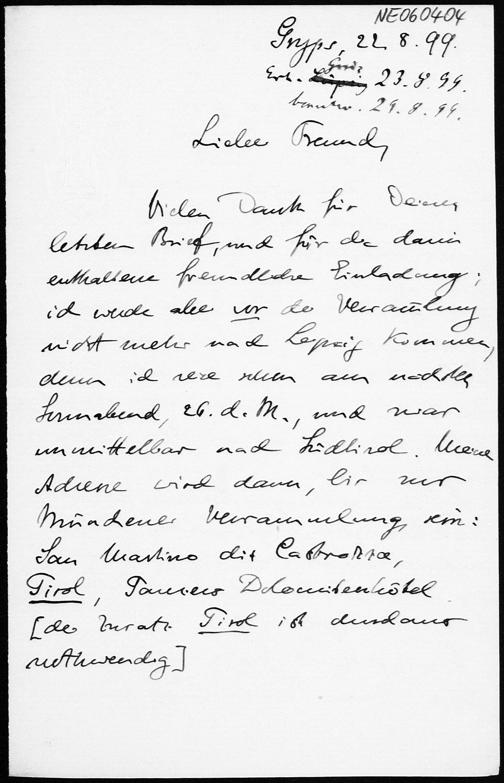 NE060404
Gryps, 22.8.99.
Erh. 23.8.99.
beantw. 29.8.99.
Lieber Freund,
Vielen Dank für Deinen
letzten Brief, und für die darin
enthaltene freundliche Einladung;
ich werde aber vor der Versammlung
nicht mehr nach Leipzig kommen,
denn ich reise schon am nächsten
Sonnabend, 26. d. M., und zwar
unmittelbar nach Südtirol. Meine
Adresse wird dann, bis zur
Münchener Versammlung, sein:
San Martino di Castrozza,
Tirol, Panzers Dolomitenhôtel
[der Zusatz Tirol ist durchaus
nothwendig]